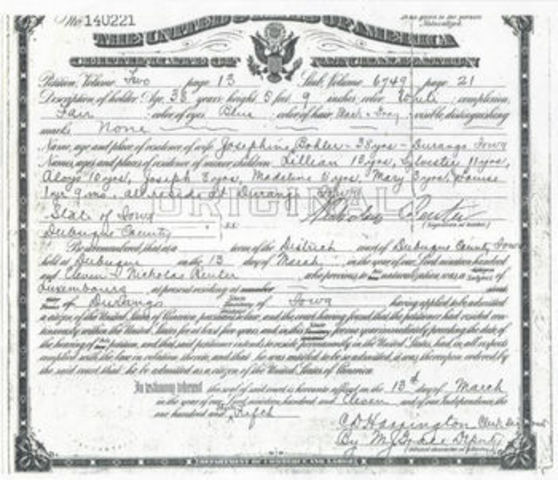 No. 140221
To be given to the person Naturalized.
THE UNITED STATES OF AMERICA
CERTIFICATE OF NATURALIZATION
Petition, Volume Two page 13 Stub, Volume 6749 page 21
Description of holder: Age, 38 years; height, 5 feet, 9 inches; color, White; complexion,
Fair; color of eyes, Blue; color of hair, Black & Gray; visible distinguishing
marks, None
Name, age and place of residence of wife, Josephine Bohler - 38 yrs - Durango Iowa
Names, ages and places of residence of minor children, Lillian 13 yrs, Sylvester 11 yrs,
10 yrs, Joseph 8 yrs, Madeline 5 yrs, Mary 3 yrs, Louise
1 yr 9 mo, all reside at Durango Iowa
ORIGINAL
State of Iowa
Dubuque County ss:
Nicholas Reuter
(Signature of holder)
Be it remembered, that at a term of the District court of Dubuque County Iowa
held at Dubuque on the 13 day of March in the year of our Lord nineteen hundred
and Eleven Nicholas Reuter who previous to his naturalization was a subject of
Luxembourg at present residing at number street
of Durango Iowa having applied to be admitted
a citizen of the United States of America pursuant to law, and the court having found that the petitioner had resided con-
tinuously within the United States for at least five years and in this for one year immediately preceding the date of
the hearing of his petition, and that said petitioner intends to reside permanently in the United States, had in all respects
complied with the law in relation thereto, and that he was entitled to be so admitted, it was thereupon ordered by
the said court that he be admitted as a citizen of the United States of America.
In testimony whereof the seal of said court is hereunto affixed on the 13th day of March
in the year of our Lord nineteen hundred and Eleven and of our Independence the
one hundred and thirty Fifth
C D Harrington Clerk
By M J Deputy
DEPARTMENT OF COMMERCE AND LABOR